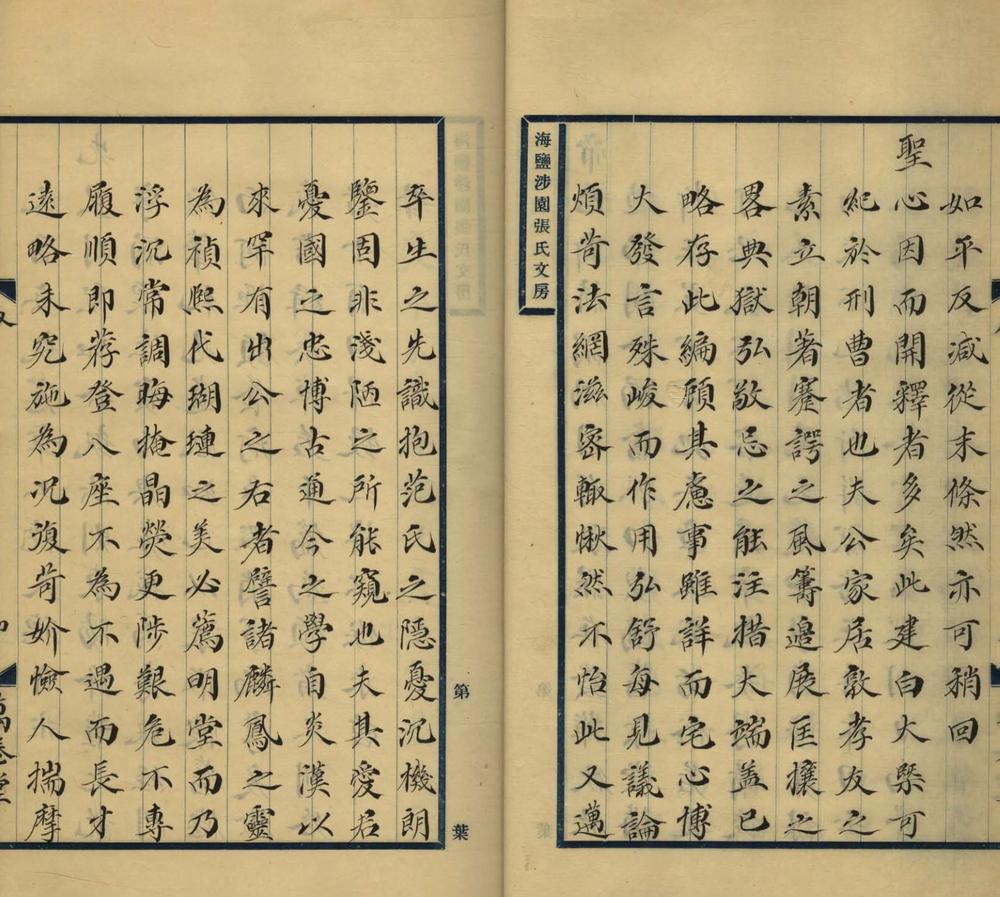 如平反減從末條然亦可稍回
聖心因而開釋者多矣此建白大槩可
紀於刑曹者也夫公家居敦孝友之
素立朝著蹇諤之風籌邊展匡攘之
畧典獄弘敬忌之能注措大端葢已
略存此編顧其慮事雖詳而宅心博
大發言殊峻而作用弘舒每見議論
煩苛法網滋密輙愀然不怡此又邁
海鹽涉園張氏文房
第 葉
卒生之先識抱范氏之隱憂沉機朗
鑒固非淺陋之所能窺也夫其愛君
憂國之忠博古通今之學自炎漢以
來罕有出公之右者譬諸麟鳳之靈
為禎熙代瑚璉之美必薦明堂而乃
浮沉常調晦掩晶熒更陟艱危不專
履順即荐登八座不為不遇而長才
遠略未究施為况復苛妎憸人揣摩